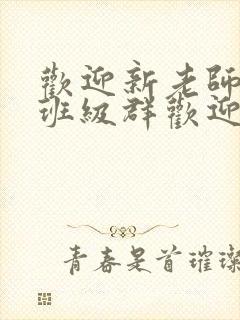 歡迎新老師
班級群歡迎
青春是首璀璨